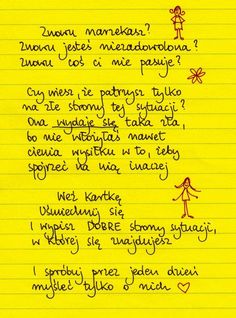 Znowu narzekasz?
Znowu jesteś niezadowolona?
Znowu coś ci nie pasuje?
Czy wiesz, że patrzysz tylko
na złe strony tej sytuacji?
Ona wydaje się taka zła,
bo nie włożyłaś nawet
cienia wysiłku w to, żeby
spojrzeć na nią inaczej
Weź kartkę
Uśmiechnij się
I wypisz DOBRE strony sytuacji,
w której się znajdujesz
I spróbuj przez jeden dzień
myśleć tylko o nich